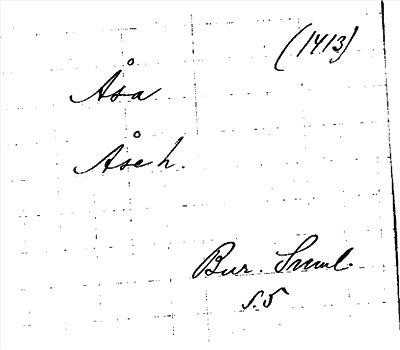 (1413)
Åsa
Åse h.
Bur. Suml.
s. 5